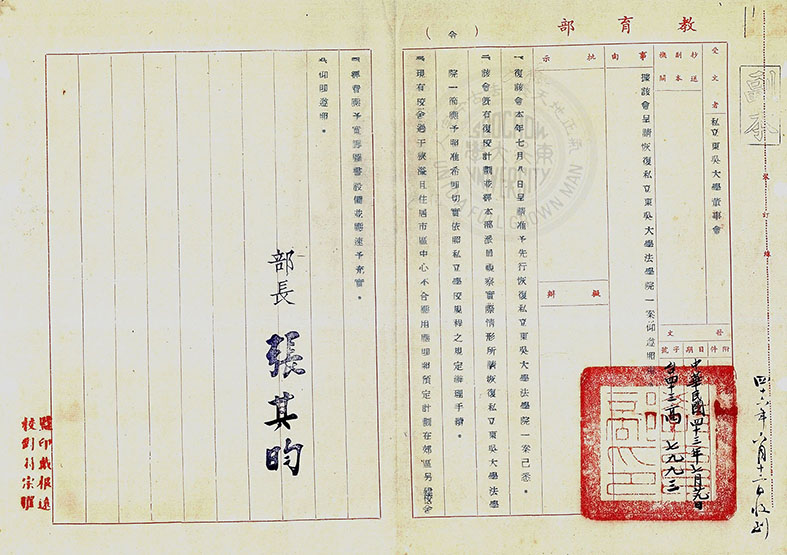 教育部
（令）
副本
受文者
私立東吳大學董事會
抄送副本機關
事由
據該會呈請恢復私立東吳大學法學院一案仰遵照由
批示
擬辦
發文
附件
日期
字號
中華民國四十三年七月 日
台四十三高 七九九三
裝訂線
一、復該會本年七月八日呈請准予先行恢復私立東吳大學法學院一案已悉。
二、該會既有復校計劃並經本部派員視察實際情形所請恢復私立東吳大學法學
院一節應予照准希即切實依照私立學校規程之規定辦理手續。
三、現有校舍過于狹隘且住居市區中心不合應用應即和預定計劃在郊區另
四、經費應予寬籌圖書設備並應速予充實。
五、仰即遵照。
部長 張其昀
監印
校對
四十六年 月十三日收到
SOOCHOW
UNIVERSITY
UNTO A FULL GROWN MAN